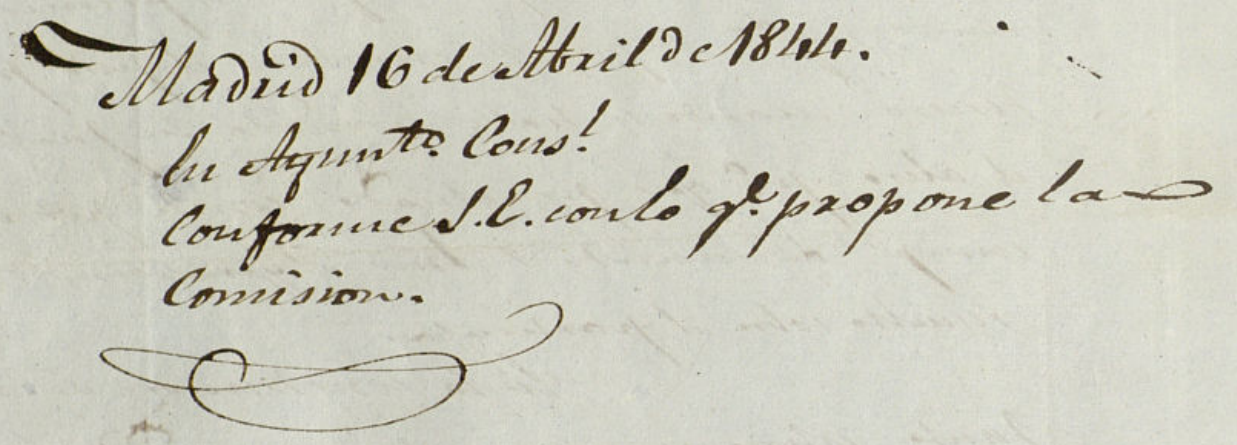 Madrid 16 de Abril de 1844.
En Ayunt.to Cons.l
Conforme S.E. con lo q.e propone la
Comision.